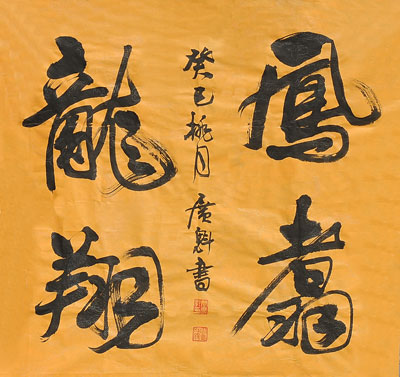 鳳翥
龍翔
癸巳桃月 廣魁書